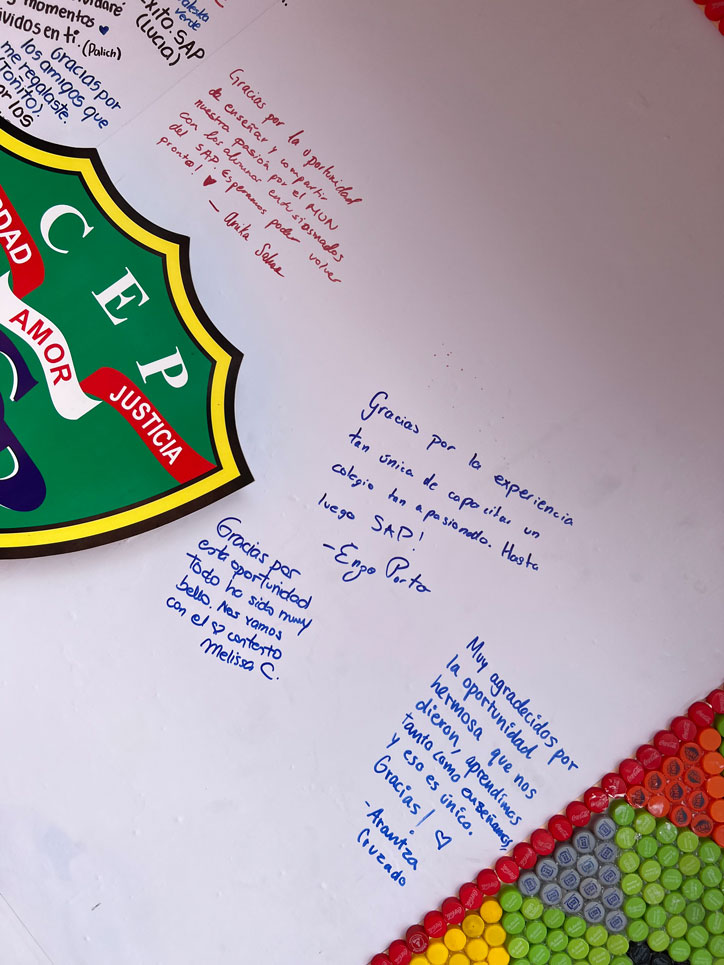 momentos
vividos en ti. (Palich)
Gracias por
los amigos que
me regalaste.
(Toñito).
por los
Verde
Éxito. SAP
(Lucía)
Gracias por la oportunidad
de enseñar y compartir
nuestra pasión por el MUN
con los alumnos entusiasmados
del SAP. Esperamos poder volver
pronto! ♥
- Anita
C E P
DAD
AMOR
JUSTICIA
Gracias por la experiencia
tan única de capacitar un
colegio tan apasionado. Hasta
luego SAP!
- Enzo Porta
Gracias por
esta oportunidad
Todo ha sido muy
bello. Nos vamos
con el ♡ contento
Melissa C.
Muy agradecidos por
la oportunidad
hermosa que nos
dieron, aprendimos
tanto como enseñamos,
y eso es único.
Gracias! ♡
- Arantza
Cruzado